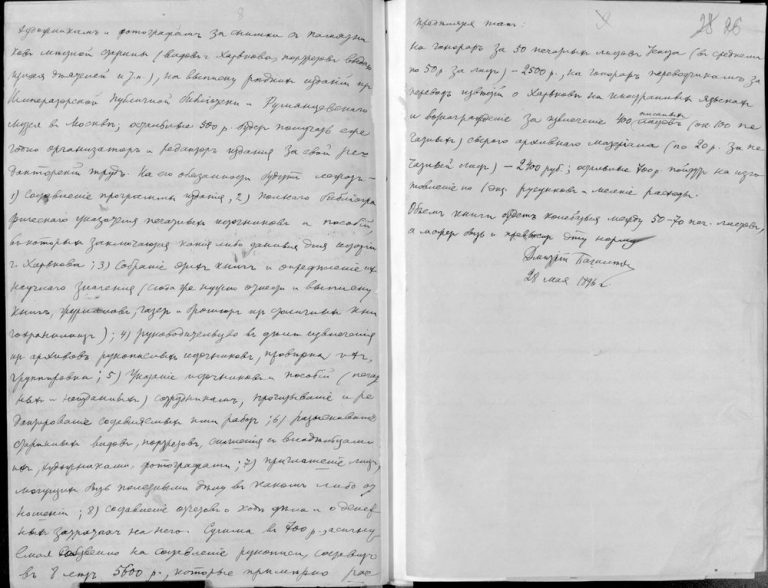 художникамъ и фотографамъ за снимки съ памятни
ковъ мѣстной старины (видовъ Харькова, портретовъ
и т. п.), на выписку рѣдкихъ изданій изъ
Императорской Публичной библіотеки и Румянцевскаго
музея въ Москвѣ; остальные 300 р. будетъ получать еже
годно организаторъ и редакторъ изданія за свой ре
дакторскій трудъ. На его обязанности будутъ лежать:
1) составленіе программы изданія, 2) полнаго библіогра
фическаго указателя печатныхъ источниковъ и пособій,
въ которыхъ заключаются какія либо данныя для исторіи
г. Харькова; 3) собраніе этихъ книгъ и опредѣленіе ихъ
научнаго значенія (сюда же нужно отнести и выписку
книгъ, журналовъ, газетъ и брошюръ изъ различныхъ кни
гохранилищъ); 4) руководительство въ дѣлѣ извлеченія
изъ архивовъ рукописныхъ источниковъ, провѣрка ихъ,
группировка; 5) указаніе источниковъ и пособій (печат
ныхъ и неизданныхъ) сотрудникамъ, прочитываніе и ре
дактированіе составленныхъ ими работъ; 6) разыскиваніе
старинныхъ видовъ, портретовъ, сношенія съ владѣльцами
ихъ, художниками, фотографами; 7) приглашеніе лицъ,
могущихъ быть полезными дѣлу въ какомъ либо от
ношеніи; 8) составленіе отчетовъ о ходѣ дѣла и о денеж
ныхъ затратахъ на него. Сумма въ 700 р., ассигну
емая на составленіе рукописи, составитъ
въ 8 лѣтъ 5600 р., которые примѣрно рас
28 26
предѣлятся такъ:
на гонораръ за 50 печатныхъ листовъ текста (въ среднемъ
по 50 р. за листъ) – 2500 р., на гонораръ переводчикамъ за
переводъ извѣстій о Харьковѣ на иностранныхъ языкахъ
и вознагражденіе за извлеченіе 400 писаныхъ листовъ (ок. 100 пе
чатныхъ) сырого архивнаго матеріала (по 20 р. за пе
чатный листъ) – 2400 руб.; остальные 700 р. пойдутъ на изго
товленіе рисунковъ и мелкіе расходы.
Объемъ книги будетъ колебаться между 50-70 печ. листовъ,
а можетъ быть и превзойдетъ эту норму
Дмитрій Багалѣй
28 мая 1896 г.